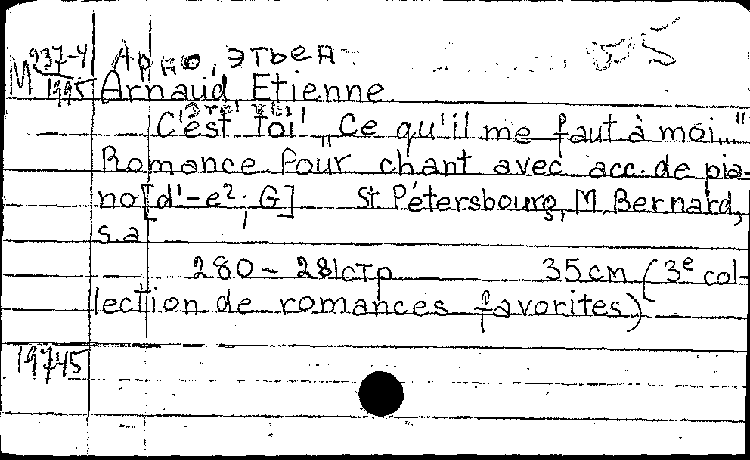 М 237-4 Арно, Этьен
1995 Arnaud Etienne
C'est Toi! „Ce qu'il me faut à moi..."
Romance pour chant avec acc. de pia-
no [d'-e²; G] St Pétersbourg, M. Bernard,
s.a
280-281стр 35cm (3e col-
lection de romances favorites)
19745